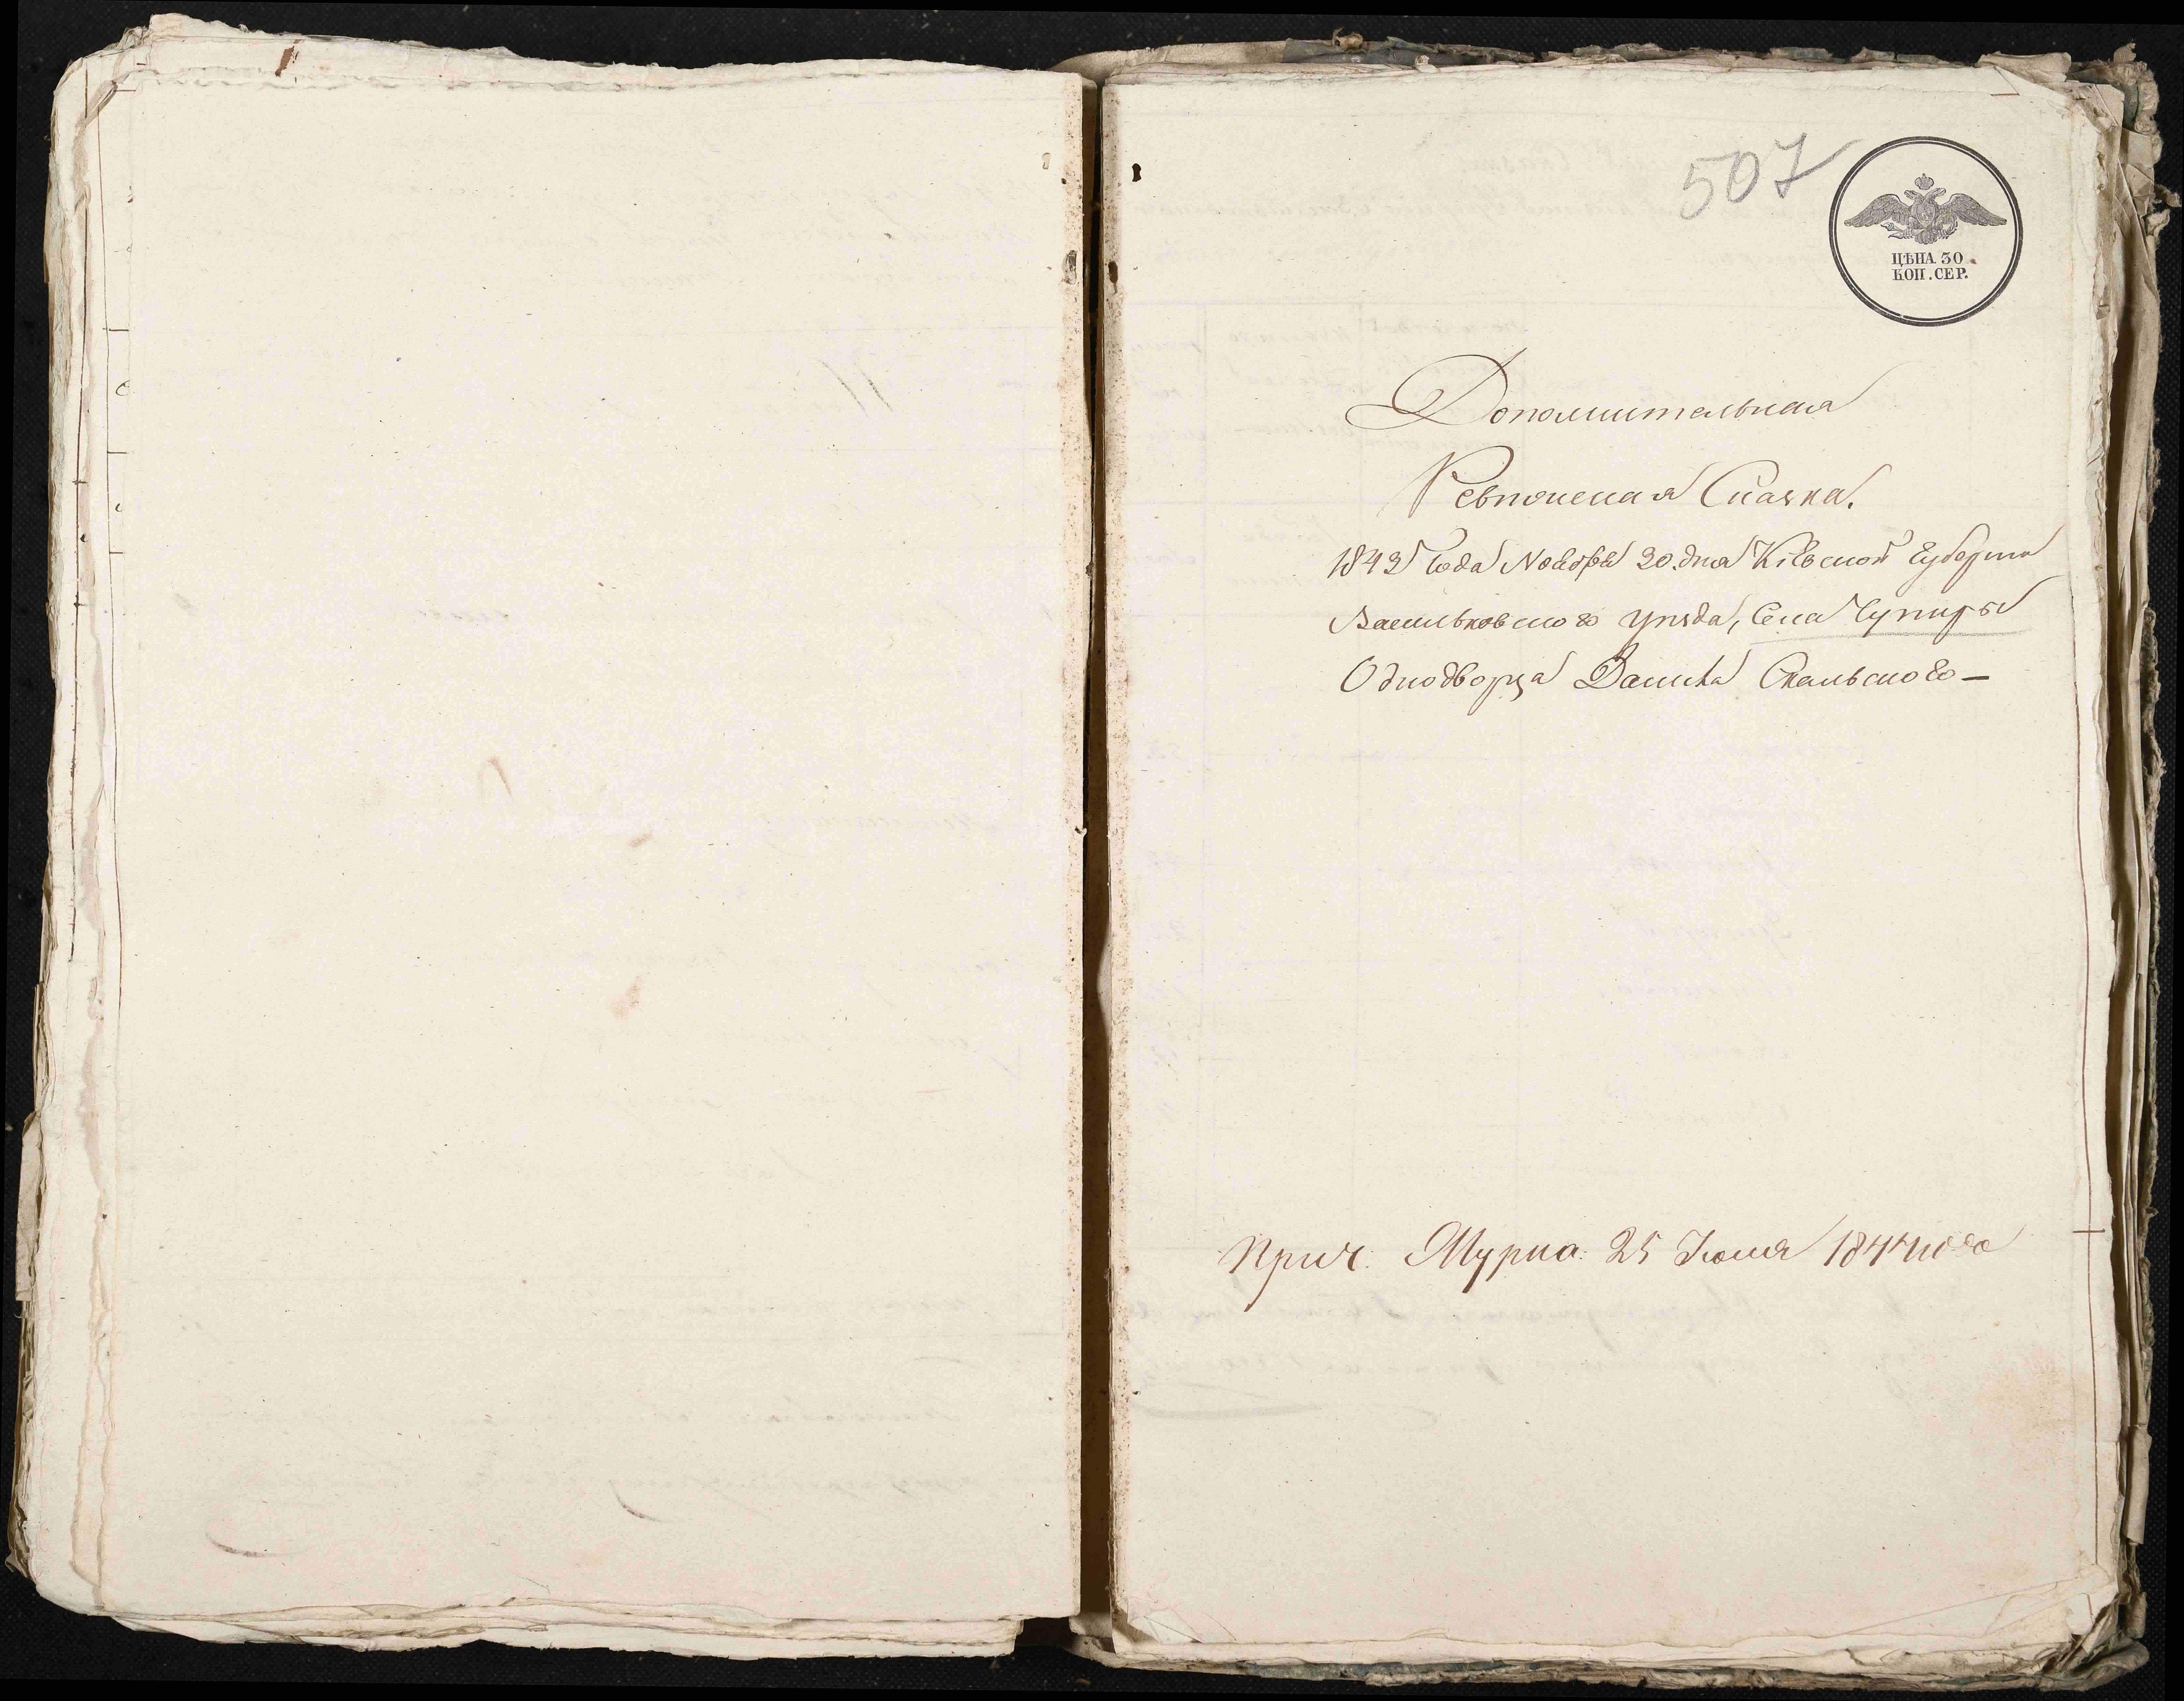 507
ЦѢНА 30
КОП. СЕР.
Дополнительная
Ревизская Сказка.
1842 года Ноября 20 дня Кіевской Губерніи
Васильковского уѣзда, Села Чупиры
Однодворца Данила Скальского —
25 Іюня 1844 года